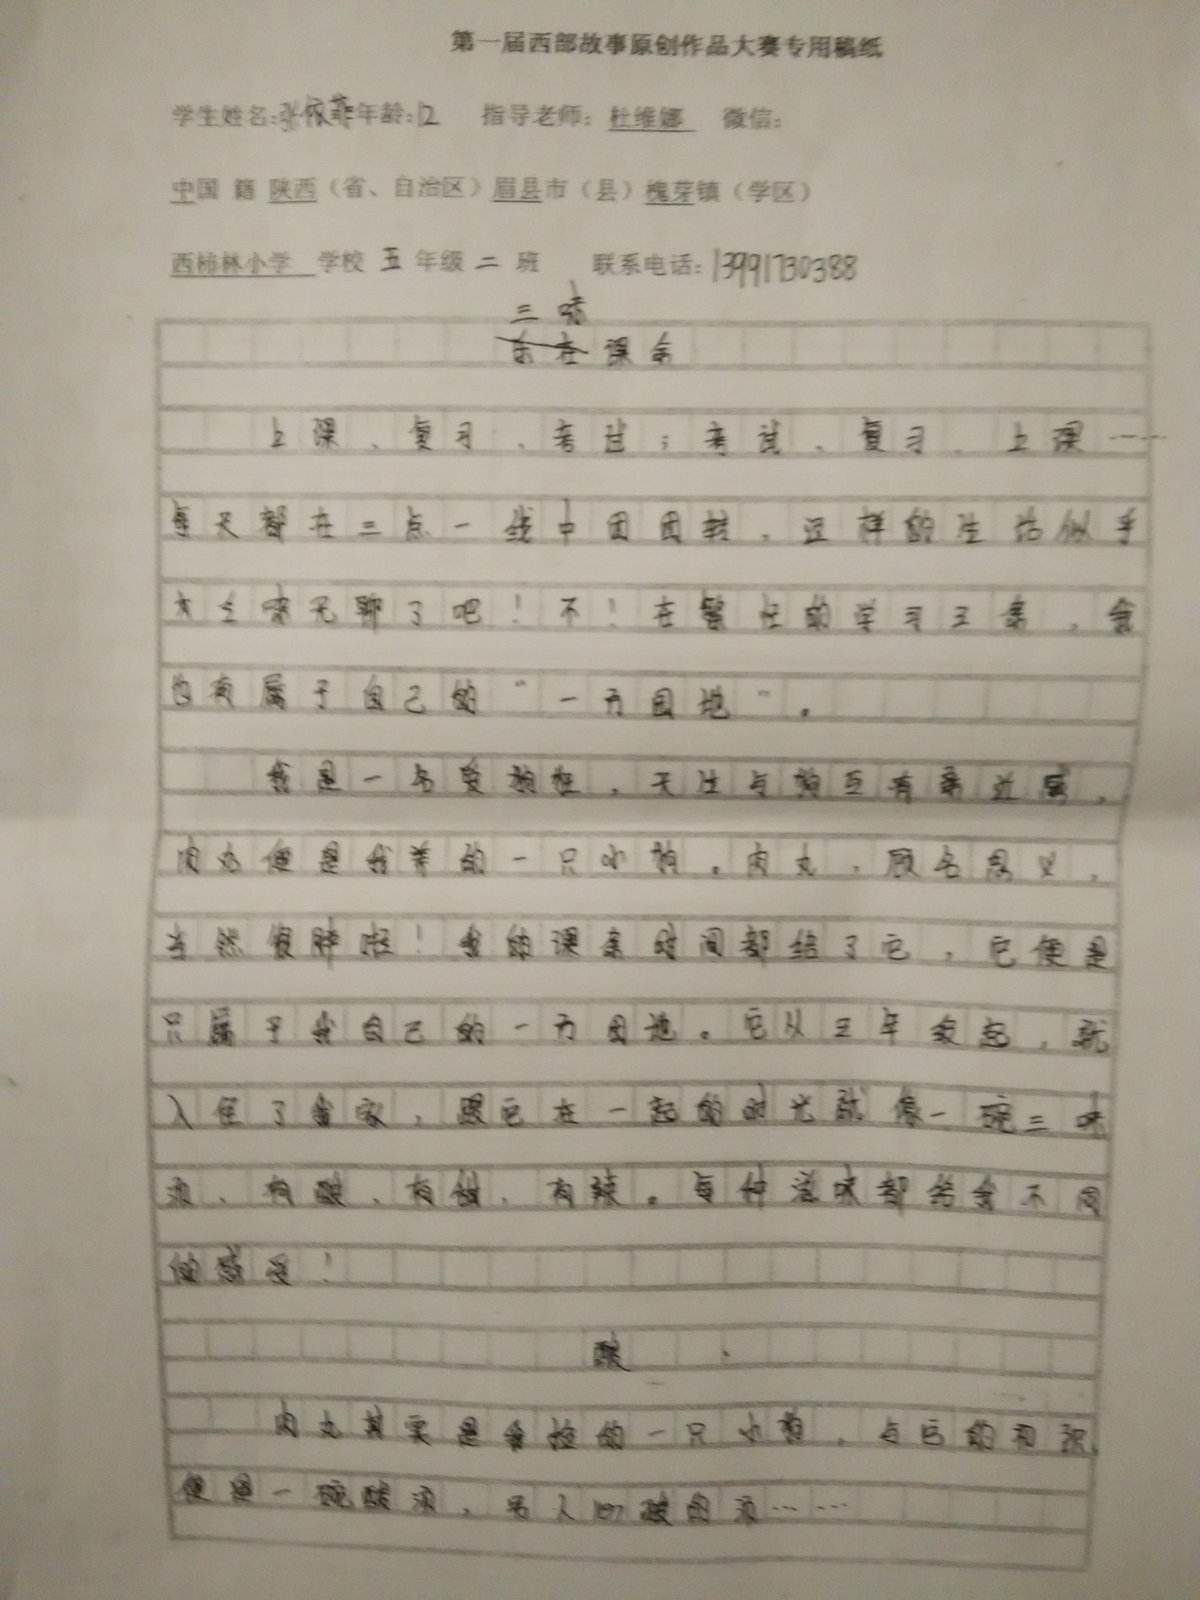 第一届西部故事原创作品大赛专用稿纸
学生姓名:张依菲年龄:12 指导老师: 杜维娜 微信:
中国 籍 陕西（省、自治区）眉县市（县）槐芽镇（学区）
西柿林小学 学校 五 年级 二 班 联系电话:13991730388
三味
余在课余
上课、复习、考试;考试、复习、上课……
每天都在三点一线中团团转,这样的生活似乎
太乏味无聊了吧!不!在繁忙的学习之余,舍
也有属于自己的“一方园地”。
我是一名爱狗狂,天生与狗互有亲近感,
肉丸便是我养的一只小狗。肉丸,顾名思义,
当然很胖啦!我的课余时间都给了它,它便是
只属于我自己的一方园地。它从三年级起,就
入住了舍家,跟它在一起的时光就像一碗三味
汤、有酸、有甜、有辣。每种滋味都给舍不同
的感受!
酸
肉丸其实是舍捡的一只小狗,与它的初识,
便是一碗酸汤,另人心酸的汤……